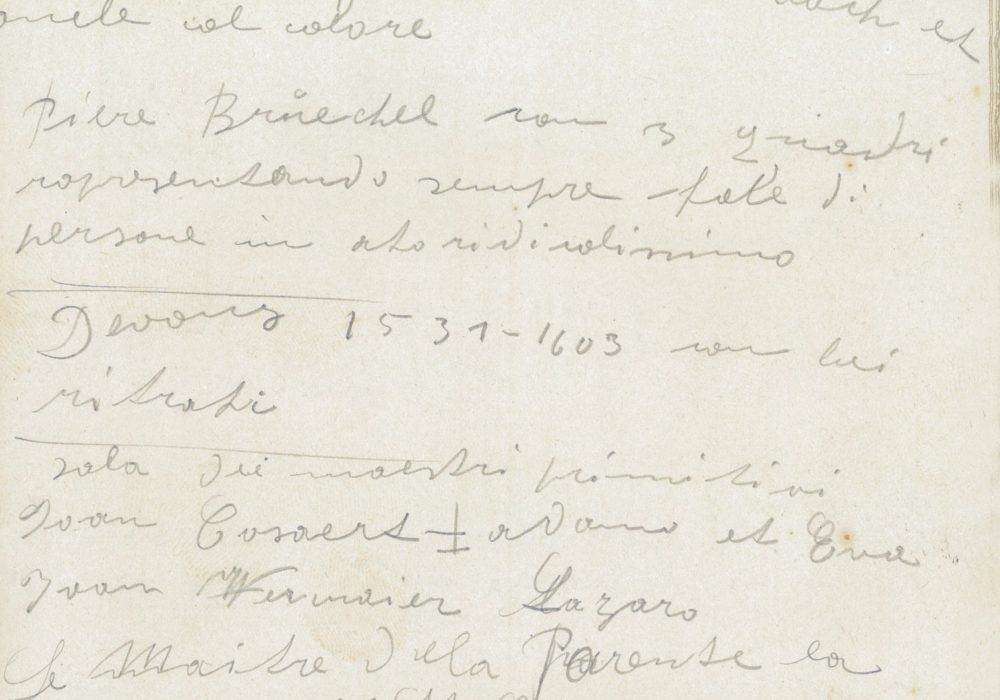 col colore
et
Piere Brüechel con 3 quadri
ropresentando sempre fate di
persone in ato ridicolissimo
Devous 1531-1603 con bei
ritrati
sala dei maestri primitivi
Joan Cosaert ± adamo et Eva
Joan Wermaier Lazaro
Le Maitre dela Parente la